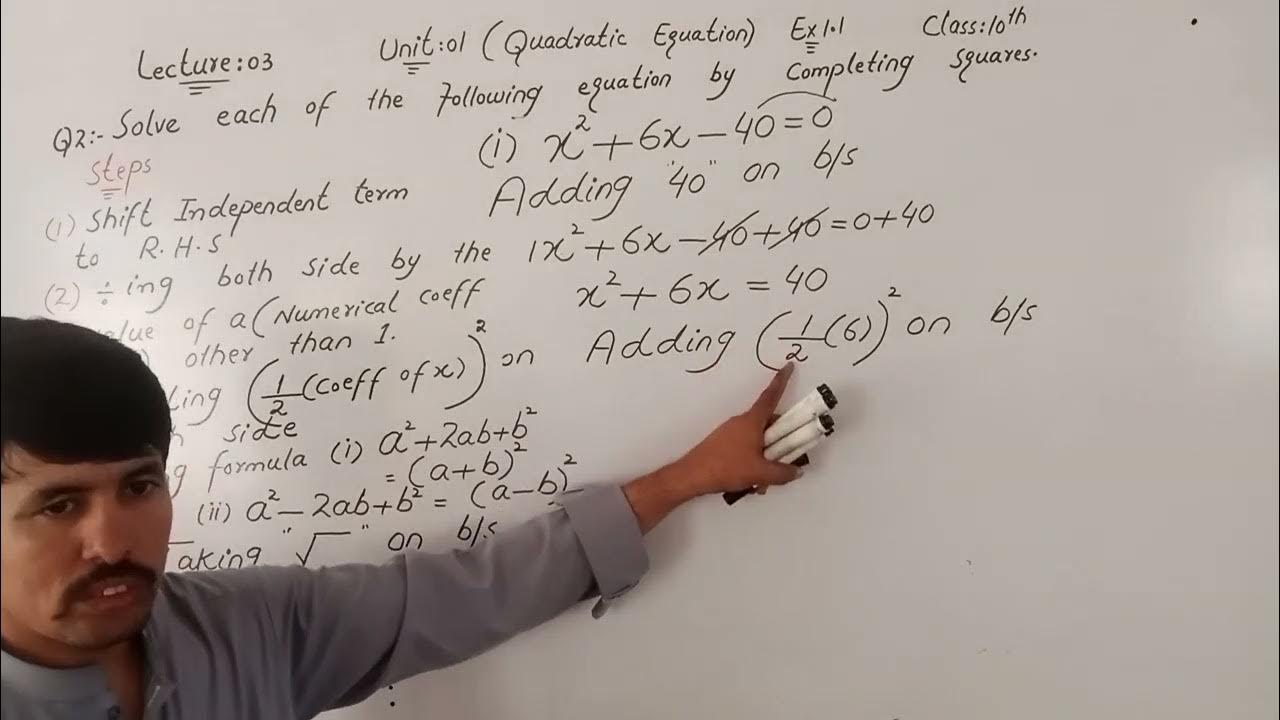 Lecture:03 Unit:01 (Quadratic Equation) Ex1.1 Class:10th
Q2:- Solve each of the following equation by Completing squares.
Steps
(1) Shift Independent term
to R.H.S
(2) ÷ing both side by the
of a (Numerical coeff
other than 1.
(1/2 (Coeff of x))² on
side
formula (i) a² + 2ab + b²
= (a+b)²
(ii) a² - 2ab + b² = (a-b)²
Taking "√" on b/s
(i) x² + 6x - 40 = 0
Adding "40" on b/s
1x² + 6x - 40 + 40 = 0 + 40
x² + 6x = 40
Adding (1/2 (6))² on b/s